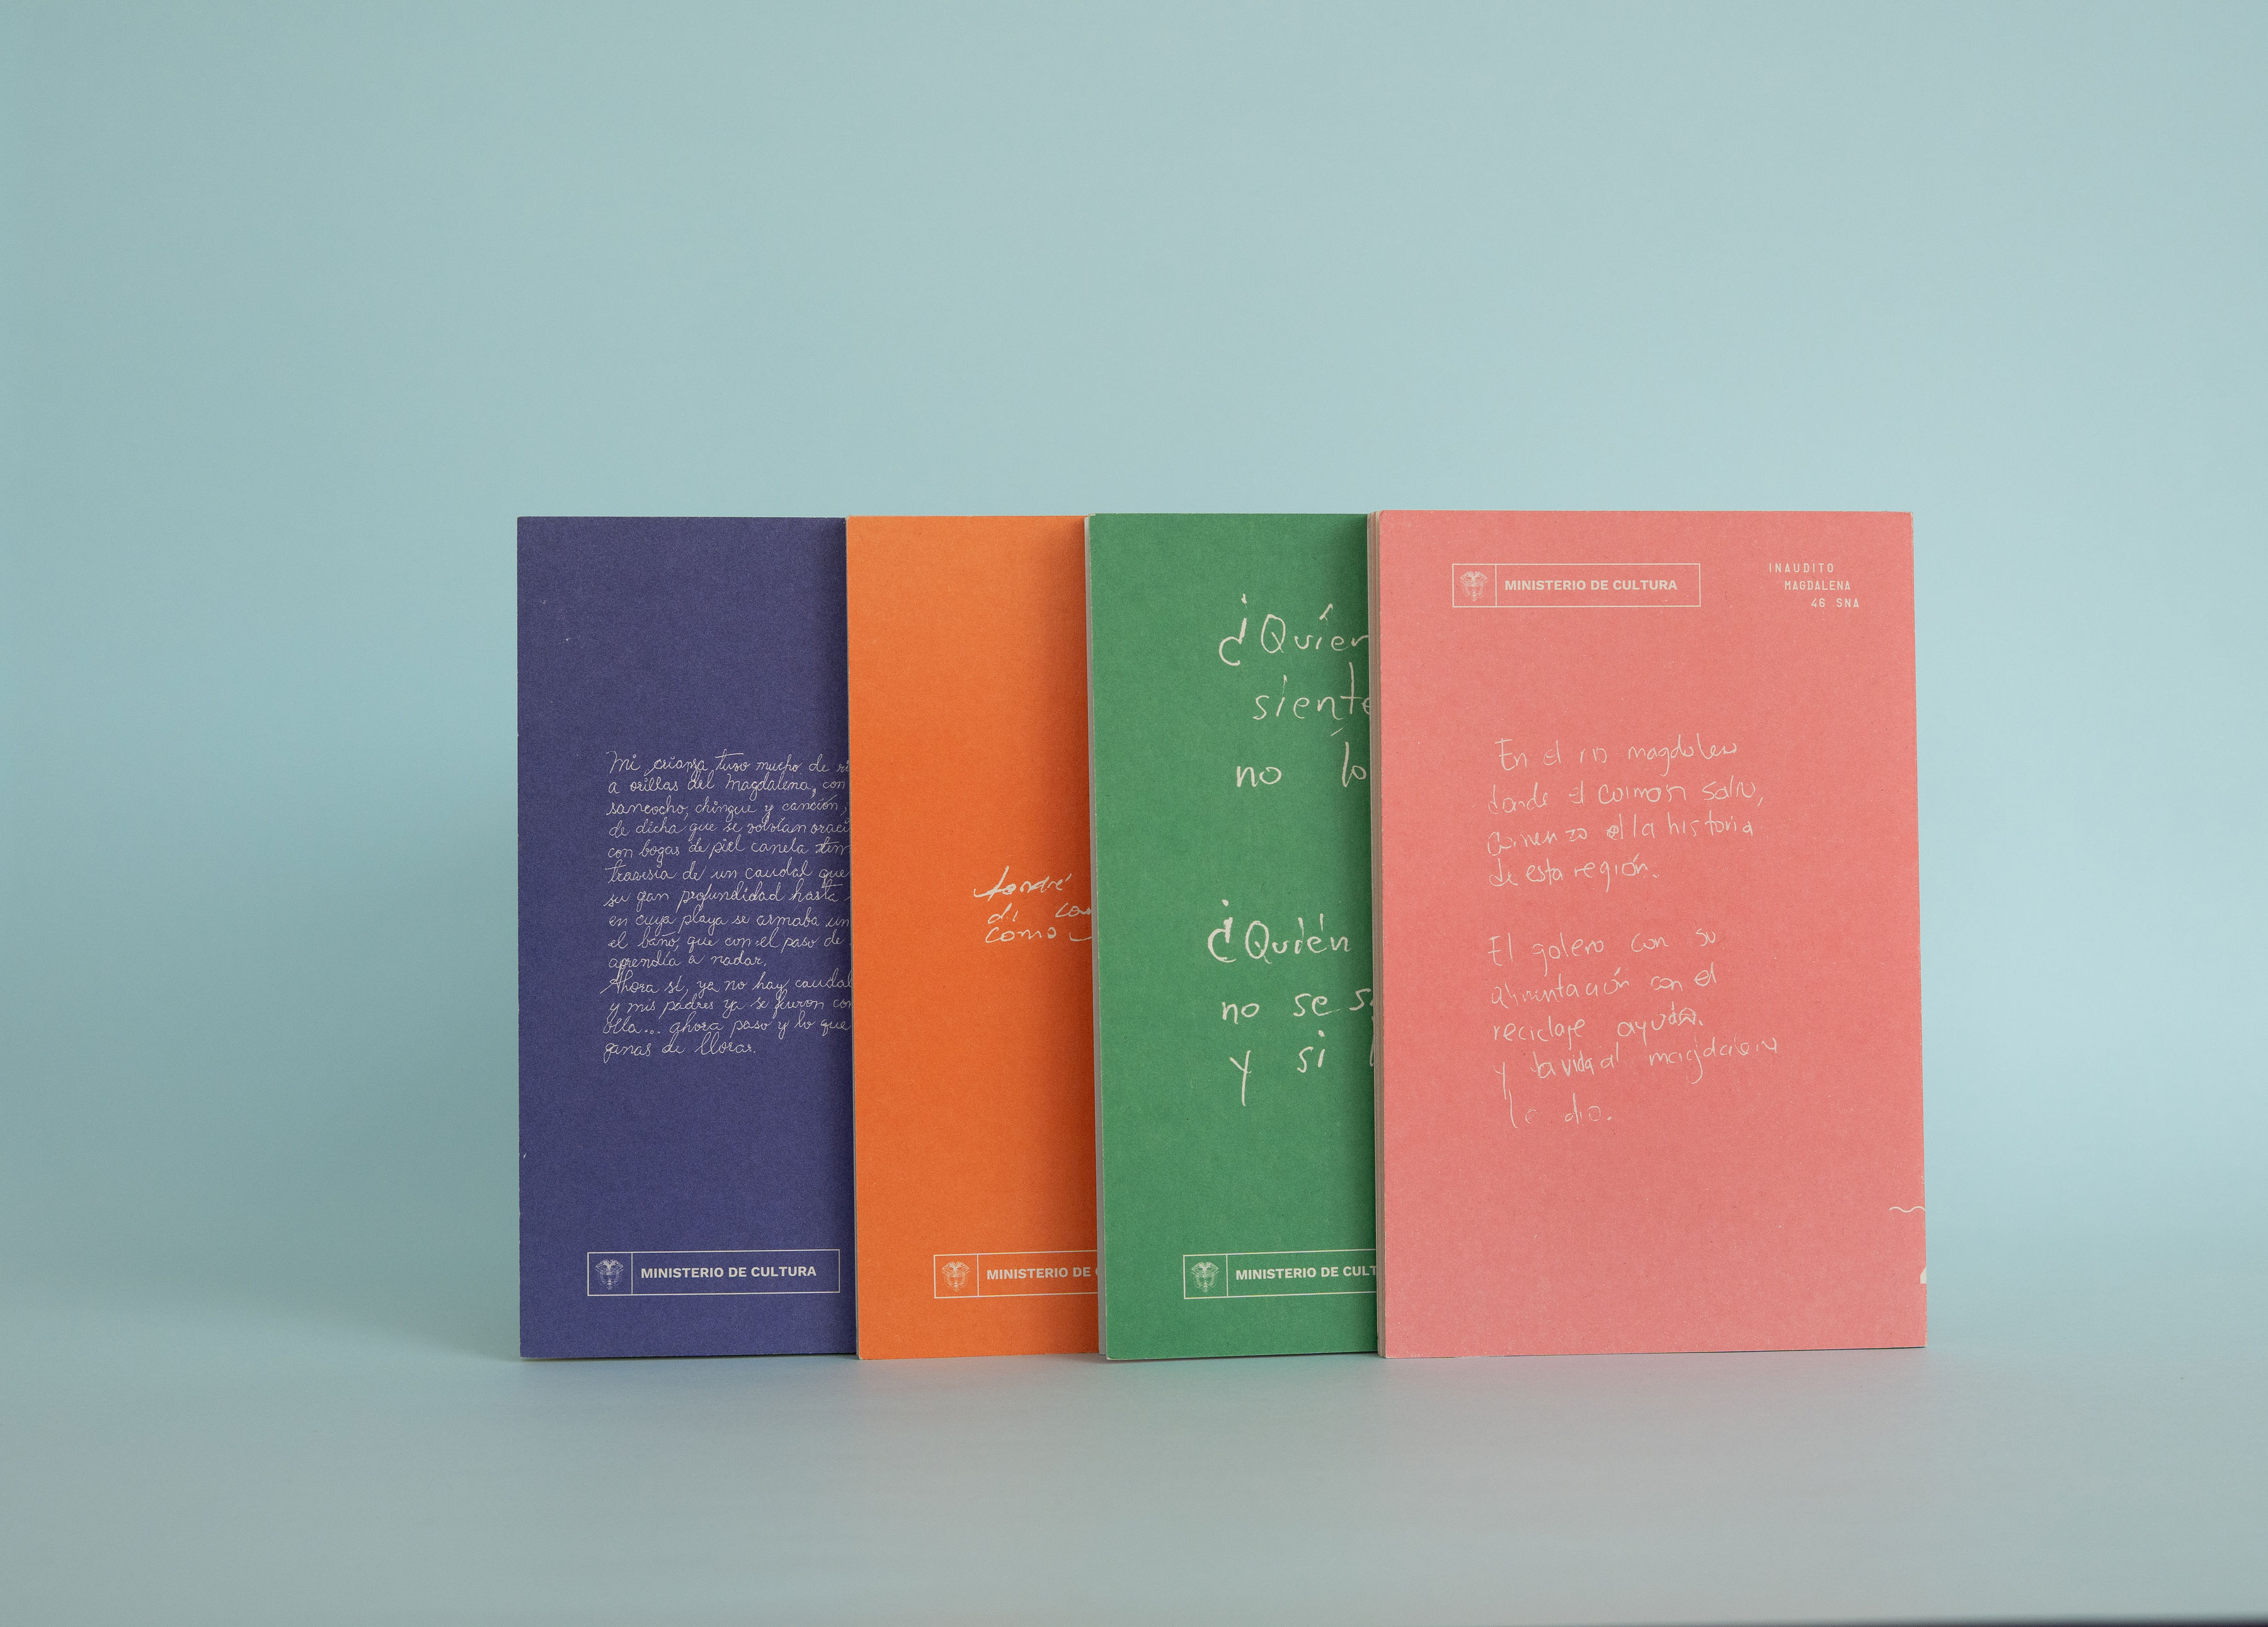 Mi crianza tuvo mucho de
a orillas del Magdalena, con
sancocho, chingue y canción,
de dicha que se volvían
con bogas de piel canela
travesía de un caudal que
su gan profundidad hasta
en cuya playa se armaba un
el baño, que con el paso de
aprendía a nadar.
Ahora sí, ya no hay caudal
y mis padres ya se fueron con
olla... ahora paso y lo que
ganas de llorar.
MINISTERIO DE CULTURA
di
como
MINISTERIO DE
¿Quien
siente
no lo
¿Quién
no se
y si
MINISTERIO DE CULT
MINISTERIO DE CULTURA
INAUDITO
MAGDALENA
46 SNA
En el rio magdalena
donde el caiman salio,
comenzo la historia
de esta región.
El golero con su
alimentación con el
reciclaje ayuda.
y la vida al magdalena
le dio.